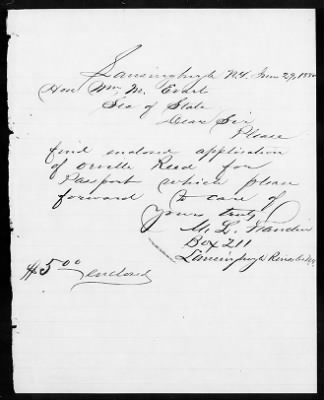 Lansingburgh N.Y. June 29, 1880
Hon Wm. M. Evarts
Sec of State
Dear Sir
Please
find enclosed application
of Orville Read for
Passport which please
forward to care of
Yours truly
M. L.
Box 211
Lansingburgh
$5.00 enclosed